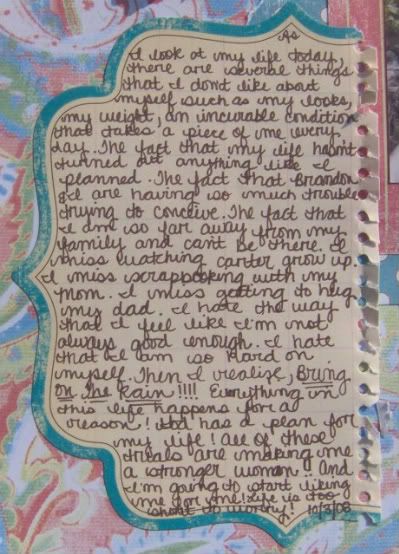 As
I look at my life today,
there are several things
that I don't like about
myself such as my looks,
my weight, an incurable condition
that takes a piece of me every
day. The fact that my life hasn't
turned out anything like I
planned. The fact that Brandon
& I are having so much trouble
trying to conceive. The fact that
I am so far away from my
family and can't be there. I
miss watching carter grow up.
I miss scrapbooking with my
mom. I miss getting to hug
my dad. I hate the way
that I feel like I'm not
always good enough. I hate
that I am so hard on
myself. Then I realize, Bring
on the Rain!!!! Everything in
this life happens for a
reason! God has a plan for
my life! All of these
trials are making me
a stronger woman!! And
I'm going to start liking
me for me! Life is too
short to worry! 10/3/08